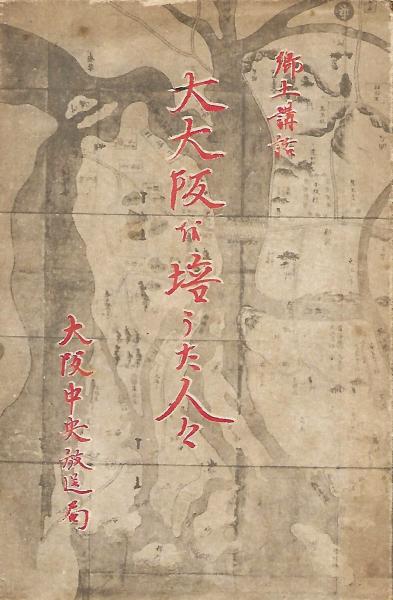 郷土講話
大大阪を培うた人々
大阪中央放送局